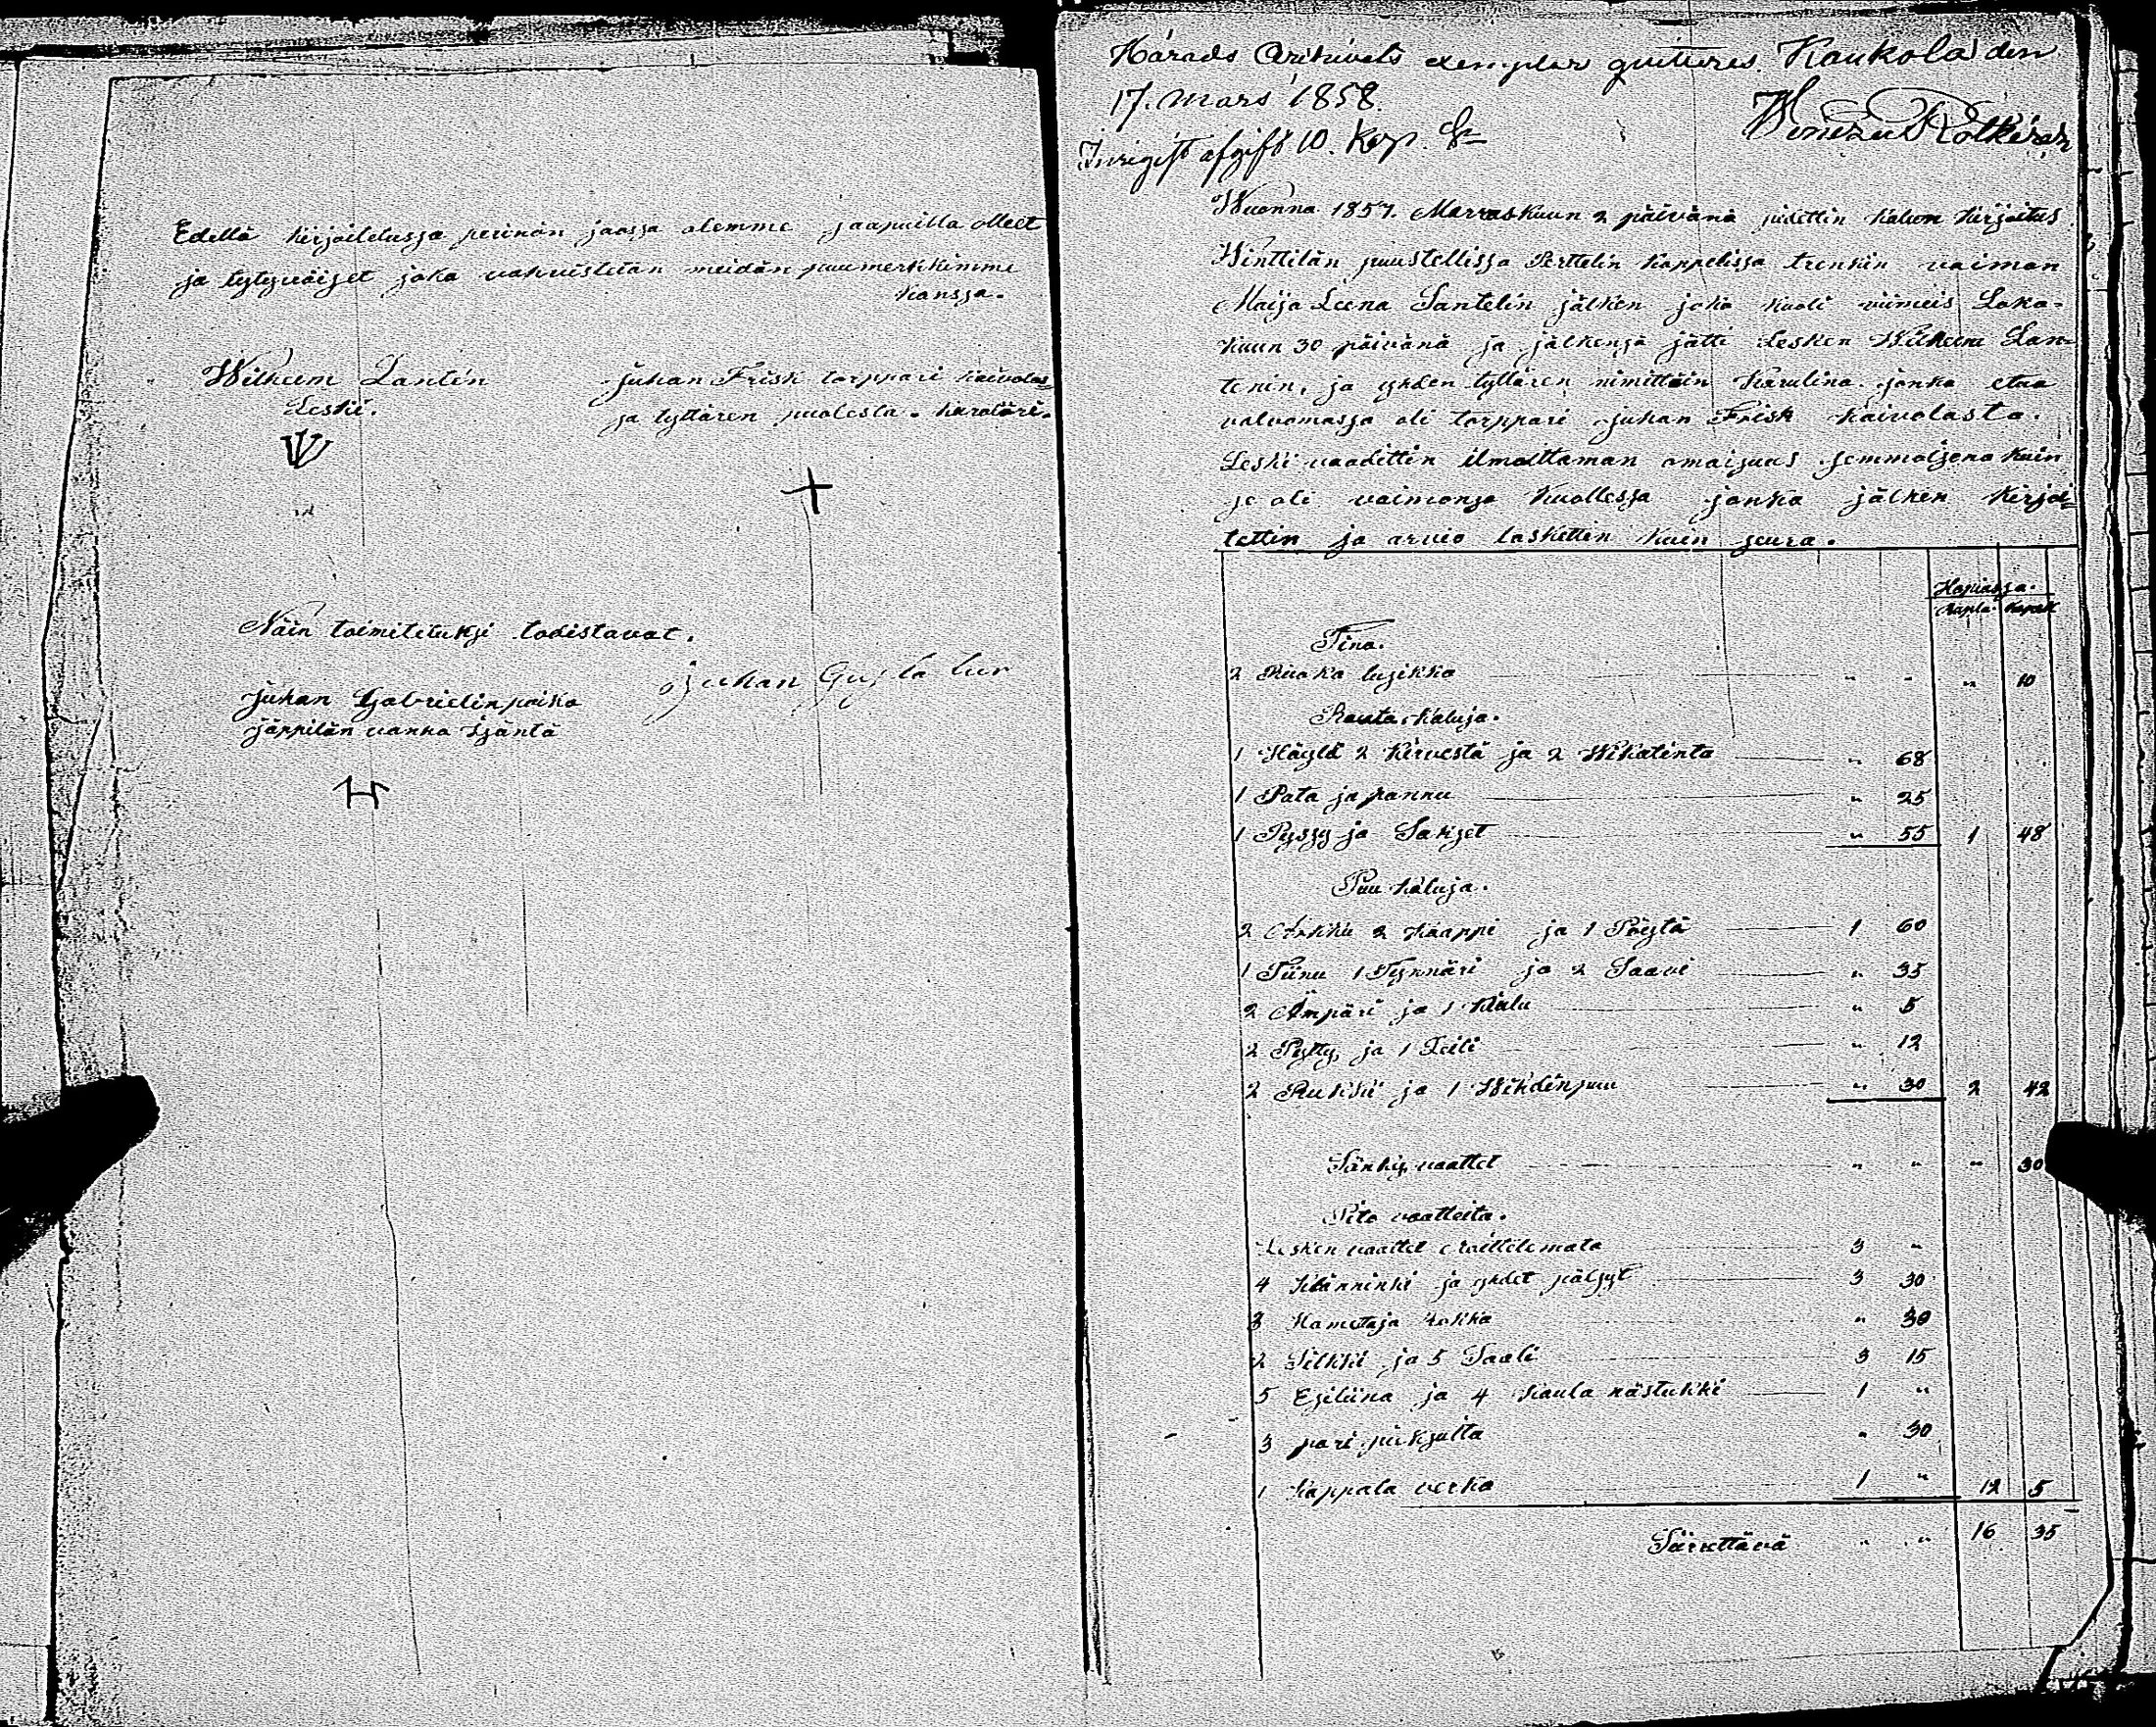 Edellä kirjoitetussa perinön jaossa olemme saapuilla olleet
ja tytyväiset joka vahvistetan meidän puumerkkimme
kanssa.
Wilhem Lantin Juhan Frisk torppari kaivolas=
Leski. ja tyttären puolesta. huratöri.
Näin toimitetuksi todistavat.
Juhan Gabrielinpoika Juhan Gusta
Jäppilän vanha Isäntä
Härads Arkivets exemplar qvitteres. Kaukola den
17. Mars 1858.
afgift 10. Kop. Sr
Wuonna 1857. Marraskuun 2 päivänä pidettin kalun kirjoitus
Winttilän puustellissa Perttelin Kappelissa trenkin vaimon
Maija Leena Santelin jälken joka kuoli viimeis Loka=
kuun 30 päivänä ja jälkensä jätti Lesken Wilhem Lan=
tenin, ja yhden tyttären nimittäin Karulina. jonka etua
valvomassa oli torppari Juhan Frisk kaivolasta.
Leski vaadittin ilmoittaman omaisuus semmoisena kuin
se oli vaimonsa kuollessa jonka jälken kirjoi=
tettin ja arvio laskettin kuin seura.
Hopiassa.
Rupla. Kopek
Tina.
2 Ruoka lusikka " " " 10
Rauta kaluja.
1 Häylä 2 Kirvestä ja 2 Wikatinta " 68
1 Pata ja pannu " 25
1 Pyssy ja Sakset " 55 1 48
Puu kaluja.
2 Arkku 2 Kaappi ja 1 Pöytä 1 60
1 Tiinu 1 Tynnäri ja 2 Saavi " 35
2 Ämpäri ja 1 Kiulu " 5
2 Pytty ja 1 Leili " 12
2 Rukkii ja 1 Wihdinpuu " 30 2 42
Sänky vaattet " " " 30
Pito vaatteita.
Lesken vaattet eroittelemata 3 "
4 Klänninki ja yhdet pälsyt 3 30
3 Hametta ja " 30
2 Silkki ja 5 Saali 3 15
5 Esiliina ja 4 Kaula nästukki 1 "
3 pari puksutta " 30
1 Kappala verka 1 " 12 5
Siirettävä " " 16 35